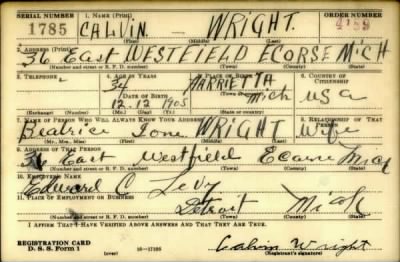 SERIAL NUMBER 1. NAME (Print) ORDER NUMBER
1785 CALVIN. — WRIGHT.
(First) (Middle) (Last)
2. ADDRESS (Print)
36 East WESTFIELD ECORSE MICH
(Number and street or R. F. D. number) (Town) (County) (State)
3. TELEPHONE 4. AGE IN YEARS 5. PLACE OF BIRTH 6. COUNTRY OF CITIZENSHIP
34 HARRIETTA
DATE OF BIRTH (Town or county)
12-12 1905 Mich USA
(Exchange) (Number) (Mo.) (Day) (Yr.) (State or country)
7. NAME OF PERSON WHO WILL ALWAYS KNOW YOUR ADDRESS 8. RELATIONSHIP OF THAT PERSON
Beatrice Ione WRIGHT Wife
(Mr., Mrs., Miss) (First) (Middle) (Last)
9. ADDRESS OF THAT PERSON
36 East Westfield Ecorse Mich
(Number and street or R. F. D. number) (Town) (County) (State)
10. EMPLOYER'S NAME
Edward C Levy
11. PLACE OF EMPLOYMENT OR BUSINESS
Detroit Mich
(Number and street or R. F. D. number) (Town) (County) (State)
I AFFIRM THAT I HAVE VERIFIED ABOVE ANSWERS AND THAT THEY ARE TRUE.
REGISTRATION CARD
D. S. S. Form 1 16—17105 Calvin Wright
(Registrant's signature)